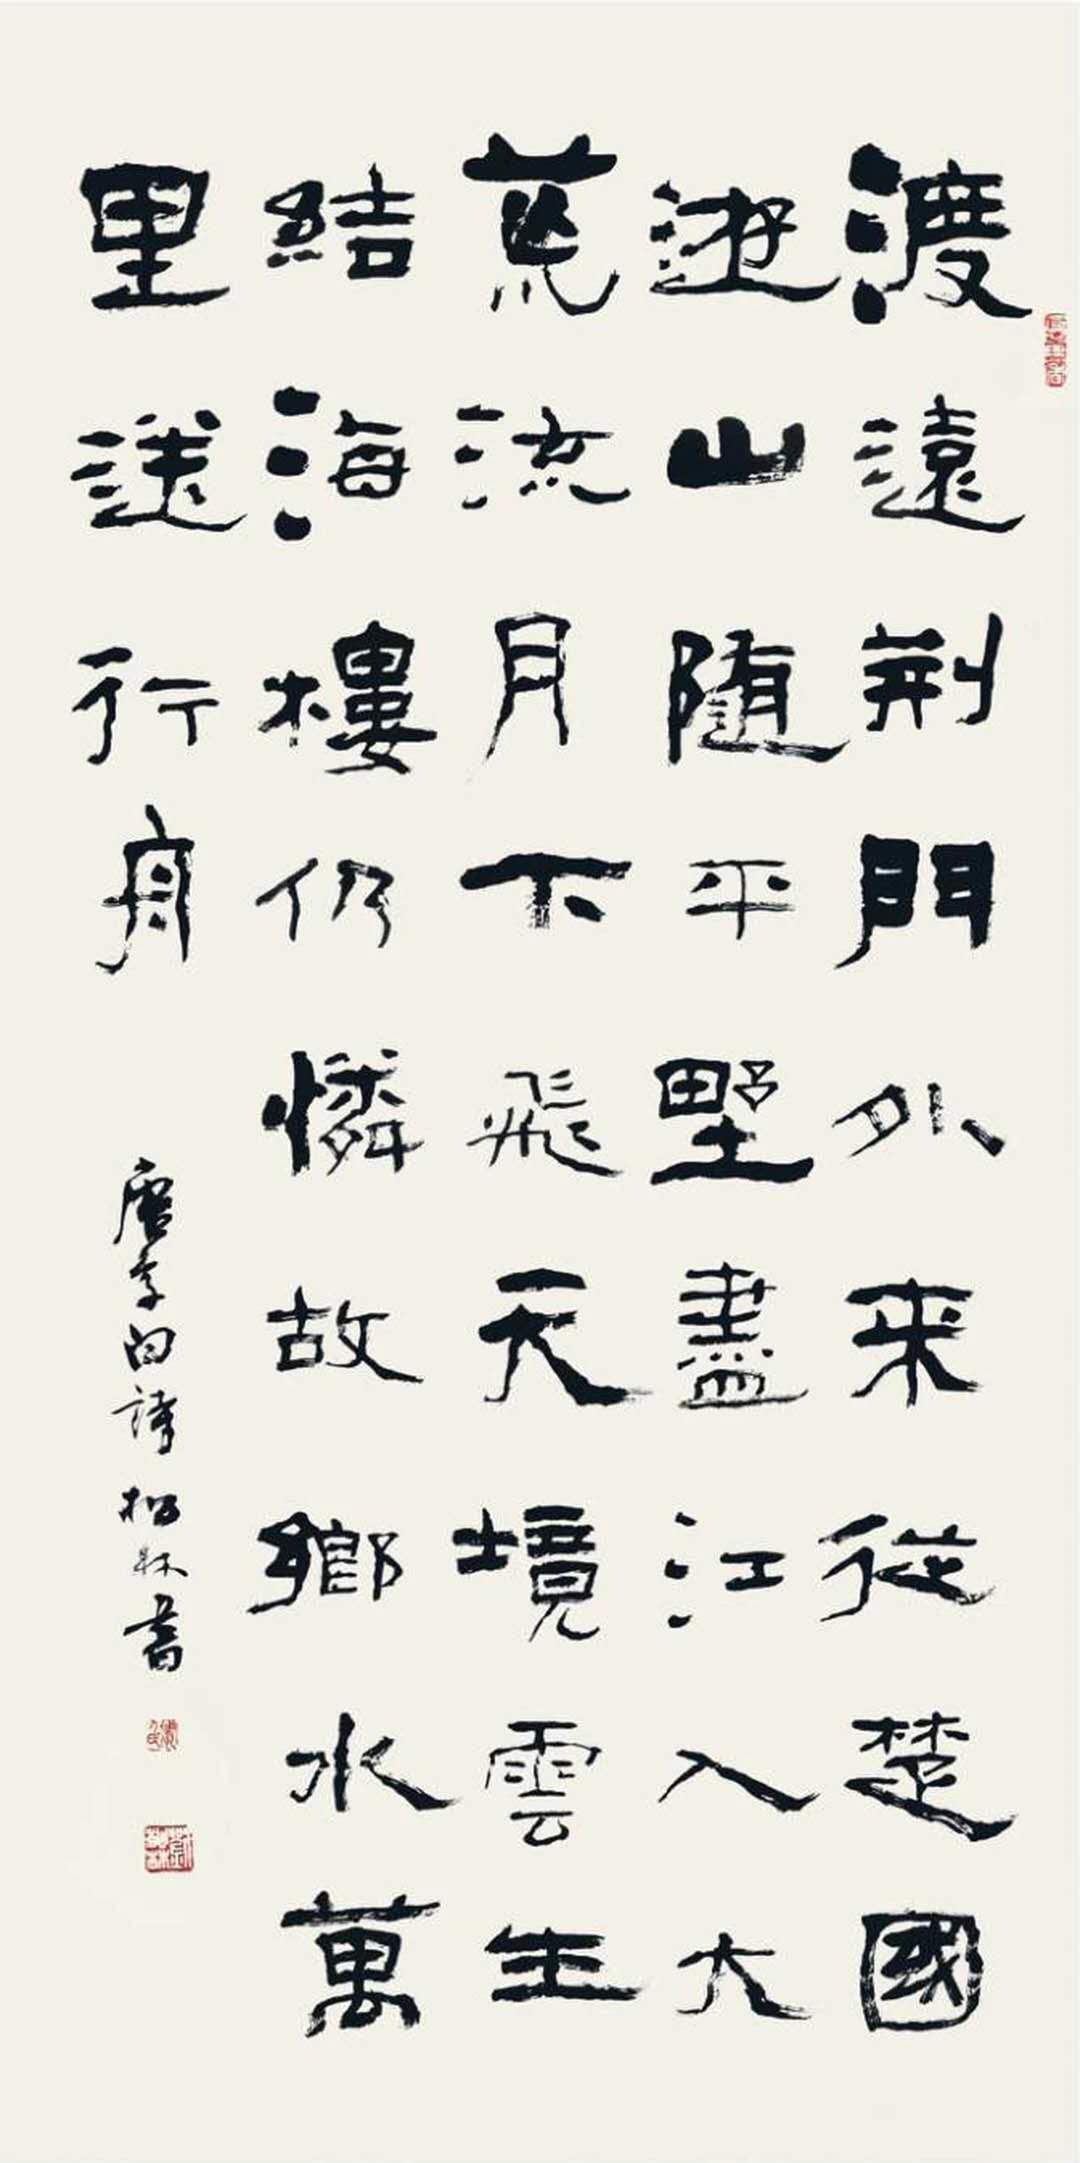 渡遠荊門外来從楚國
遊山随平野盡江入大
荒流月下飛天境雲生
結海樓仍憐故鄉水萬
里送行舟
唐李白詩松林書